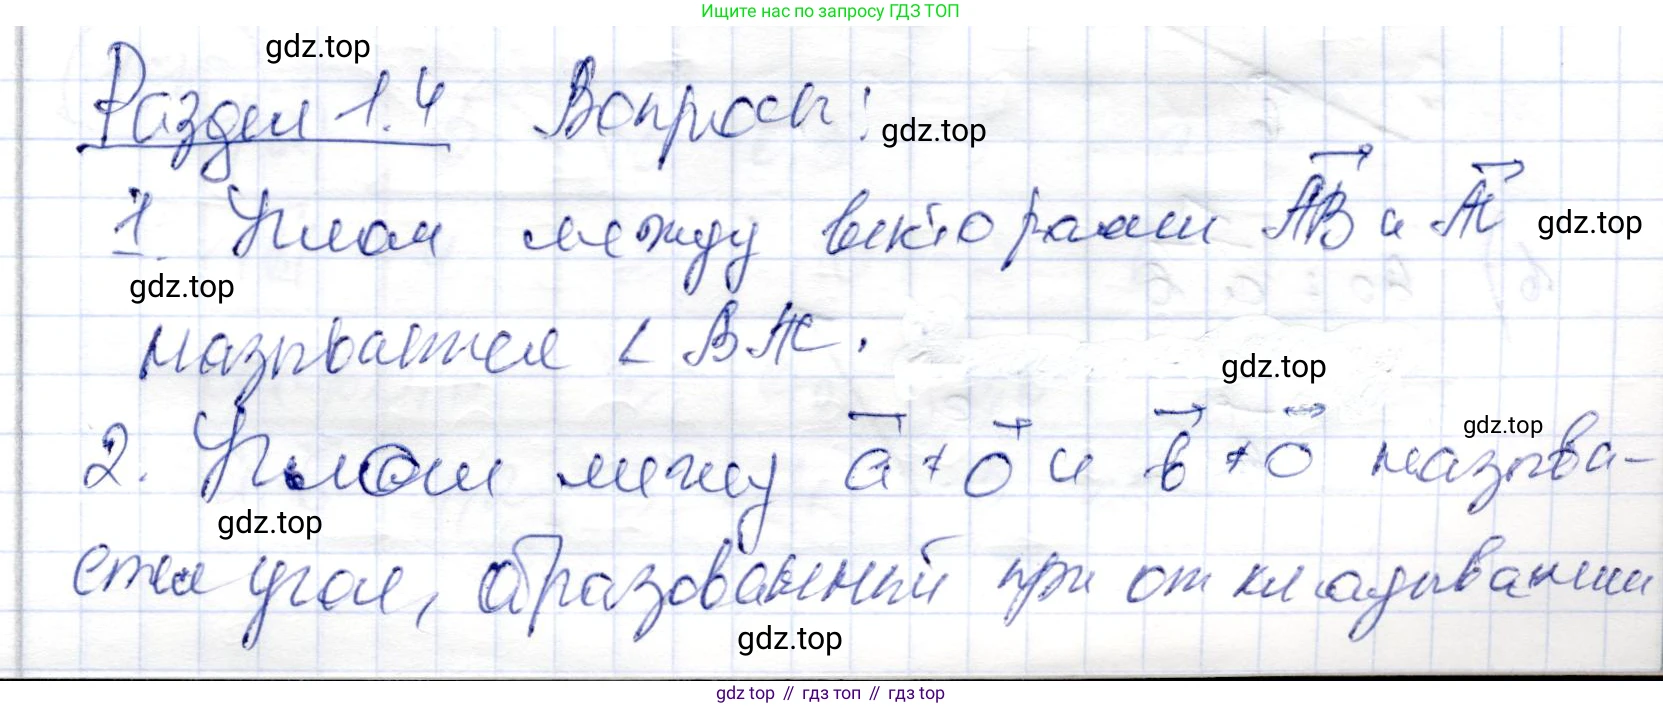 Ищите нас по запросу ГДЗ ТОП
gdz.top
Раздел 1.4 Вопросы:
gdz.top
1. Углом между векторами AB и AC
gdz.top
gdz.top
называется ∠ BAC.
gdz.top
2. Углом между a ≠ 0 и b ≠ 0 назва-
gdz.top
gdz.top
ется угол, образованный при откладывании
gdz.top
gdz top // гдз топ // gdz top